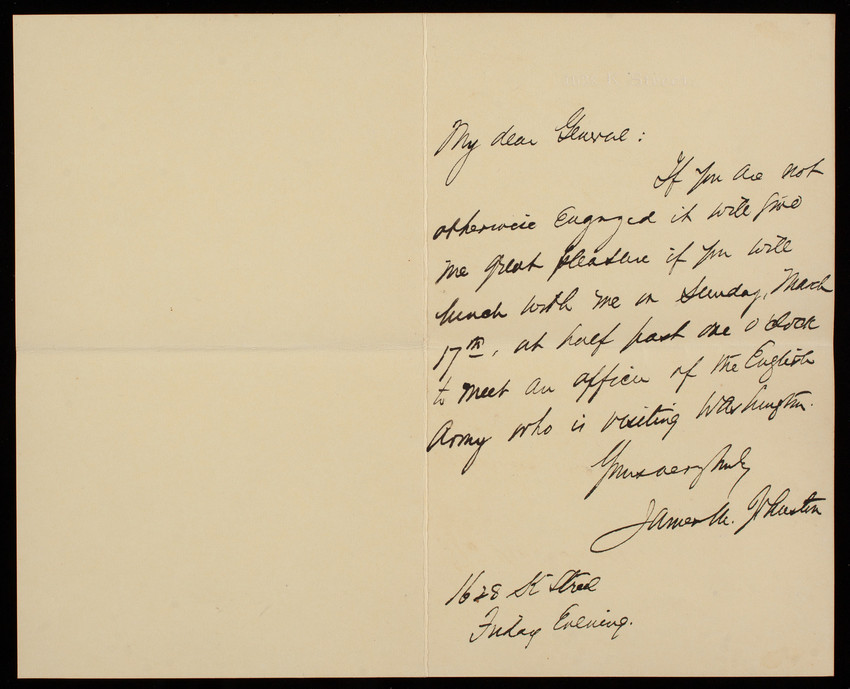 My dear General:
If you are not
otherwise engaged it will give
me great pleasure if you will
lunch with me on Sunday, March
17th, at half past one o'clock
to meet an officer of the English
Army who is visiting Washington.
Yours very truly
James M. Johnston
1628 K Street
Friday Evening.